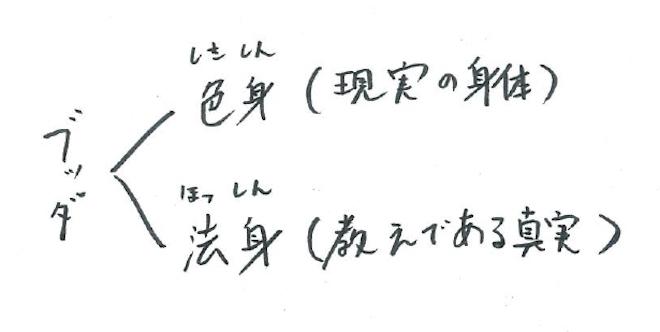 ブッダ
しき しん
色身（現実の身体）
ほっ しん
法身（教えである真実）